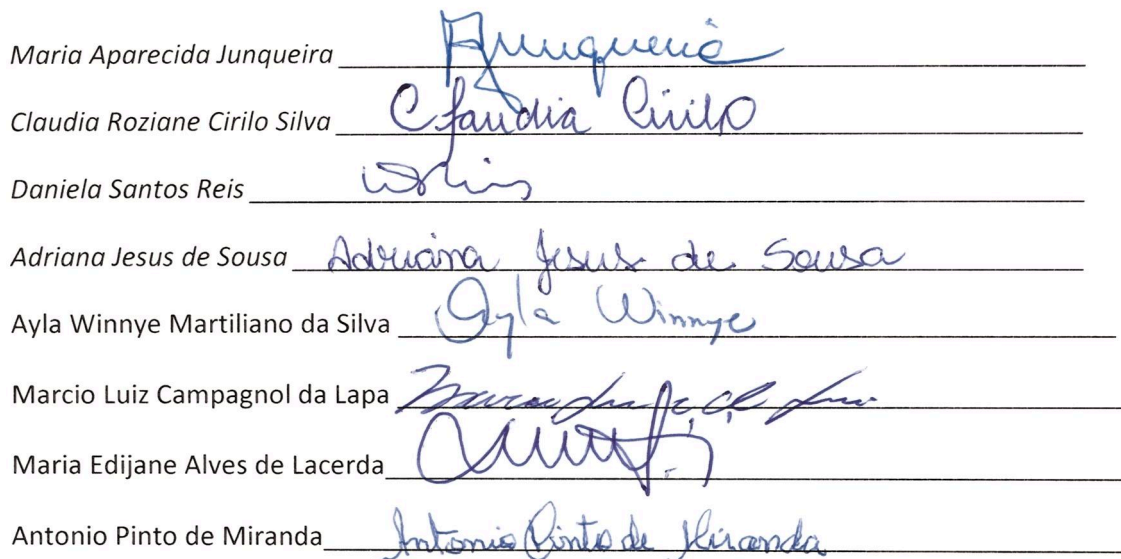 Maria Aparecida Junqueira Ajunqueira
Claudia Roziane Cirilo Silva Claudia Cirilo
Daniela Santos Reis
Adriana Jesus de Sousa Adriana Jesus de Sousa
Ayla Winnye Martiliano da Silva Ayla Winnye
Marcio Luiz Campagnol da Lapa
Maria Edijane Alves de Lacerda
Antonio Pinto de Miranda Antonio Pinto de Miranda